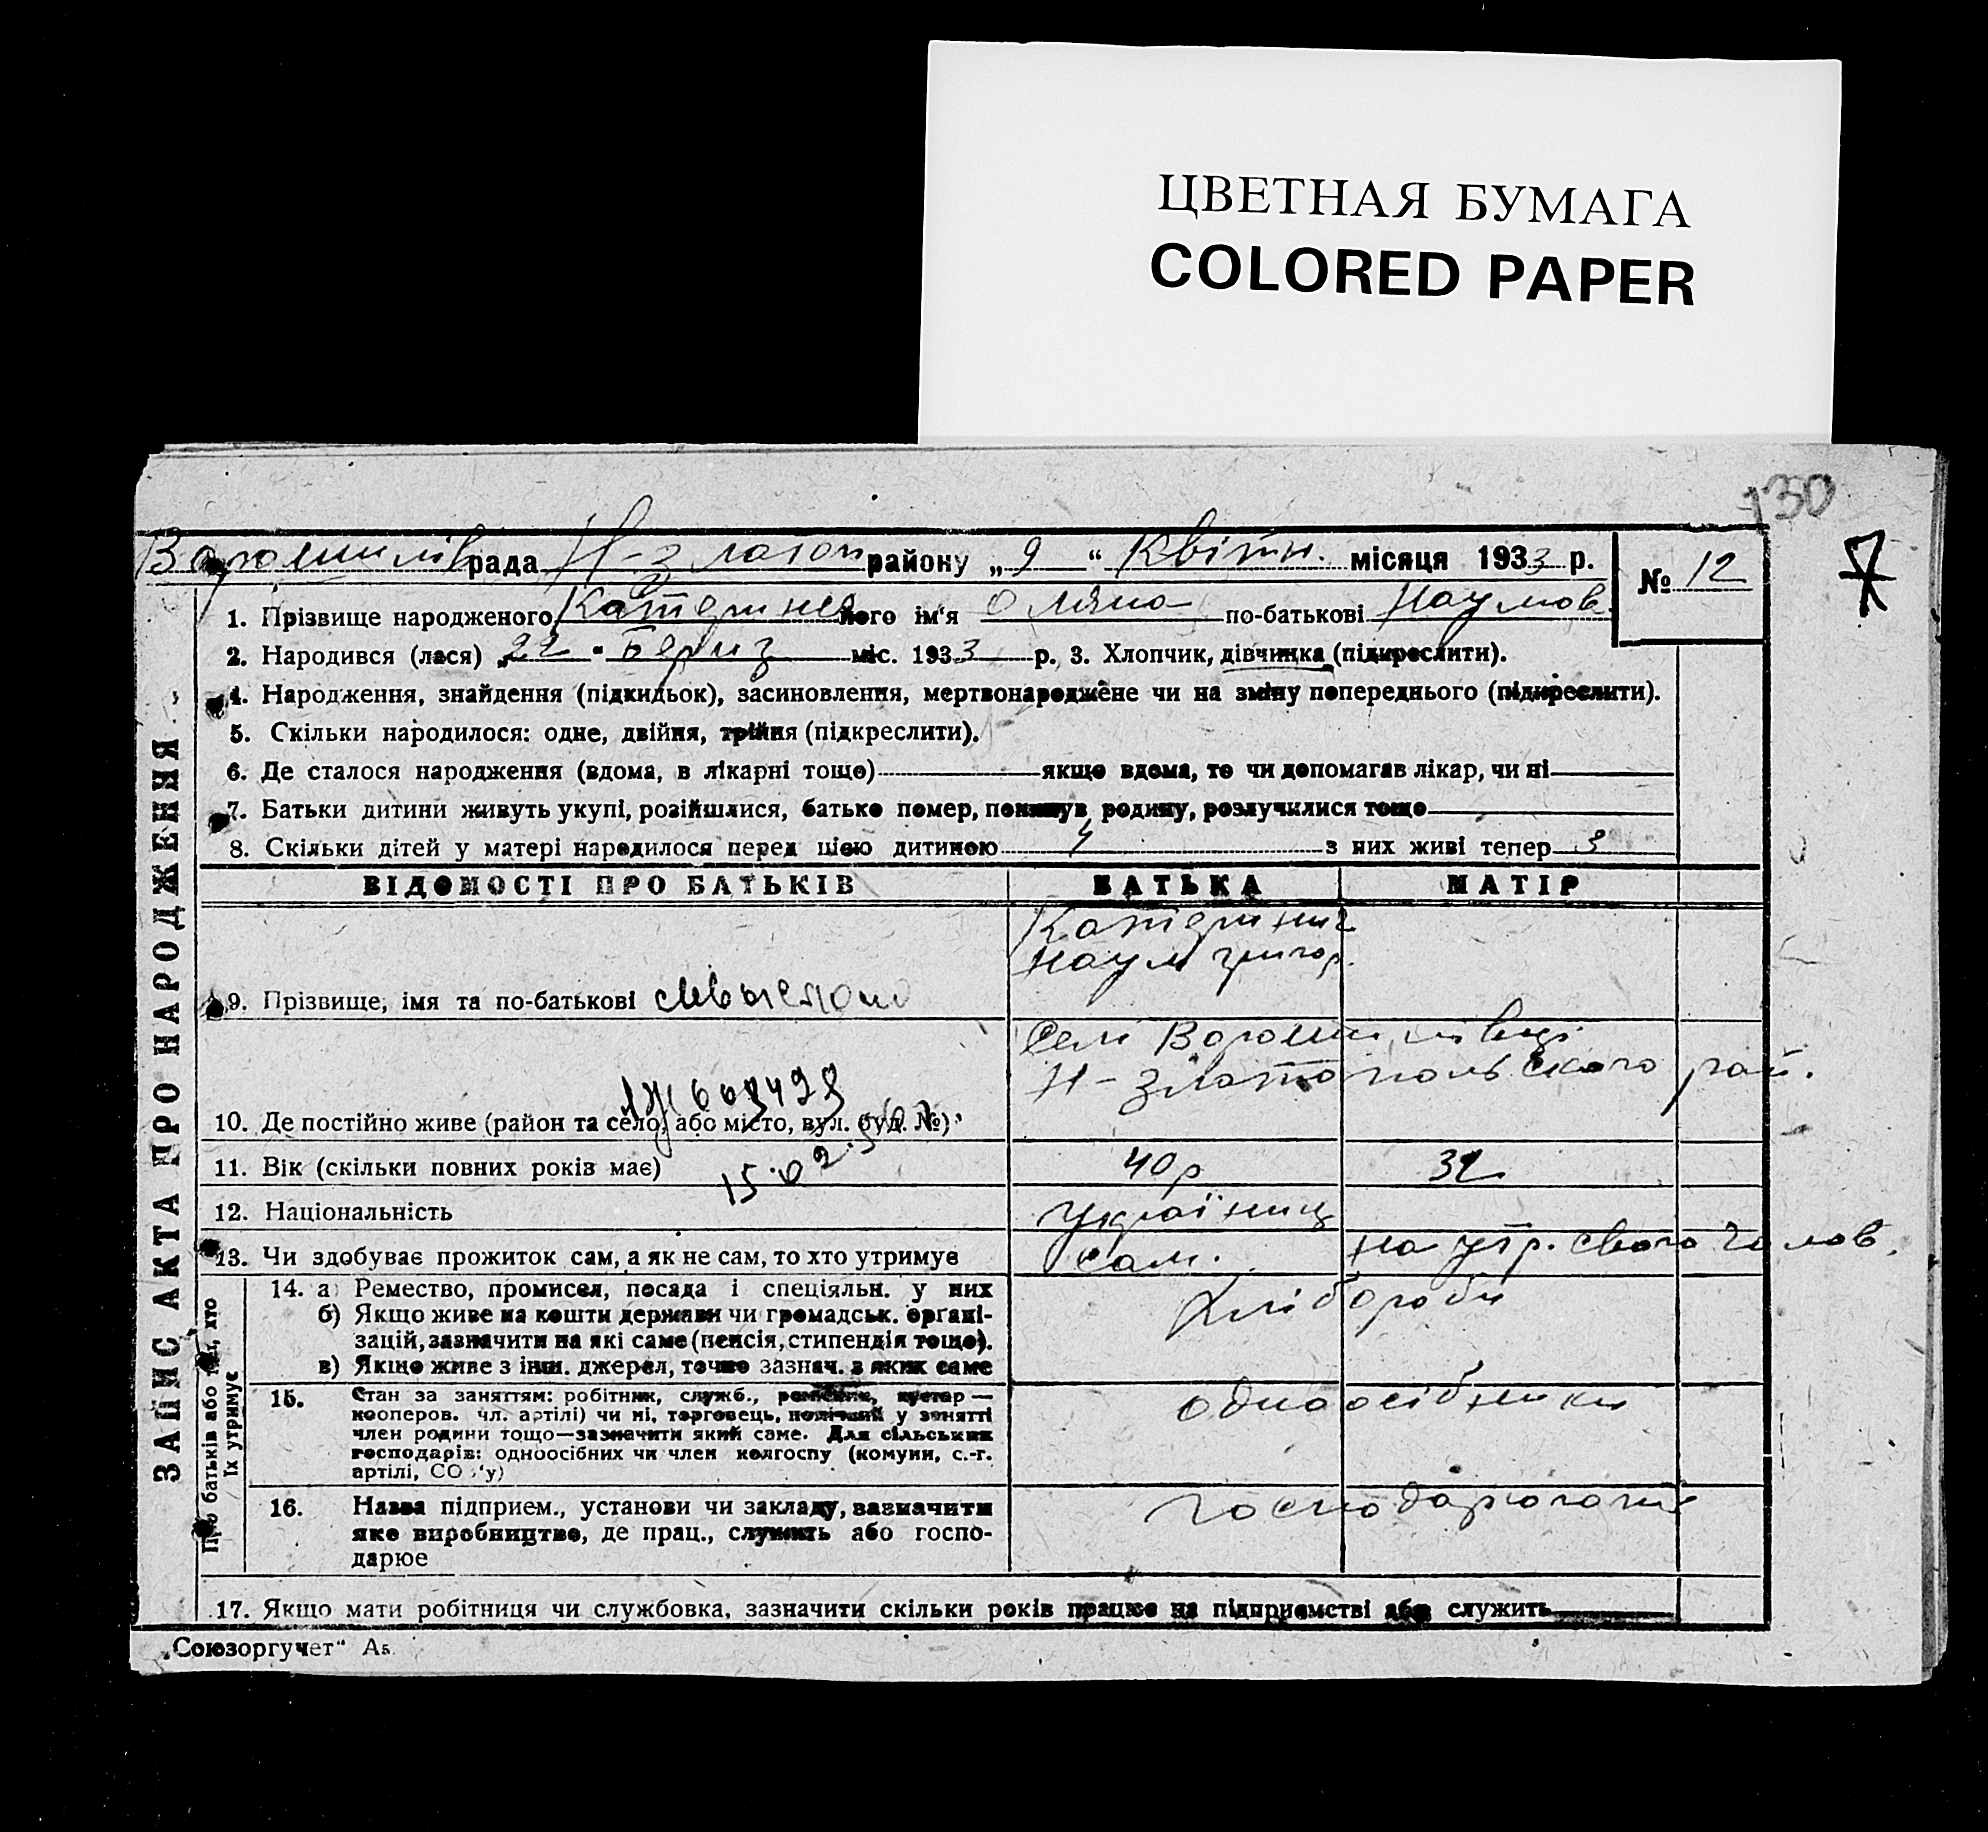 ЦВЕТНАЯ БУМАГА
COLORED PAPER
130
Ворошилів рада Н-Златоп району „9“ Квітн. місяця 1933 р. № 12
ЗАПИС АКТА ПРО НАРОДЖЕННЯ
1. Прізвище народженого Катеринич його ім'я Оляна по-батькові Наумов.
2. Народився (лася) „22“ Берез міс. 1933 р. 3. Хлопчик, дівчинка (підкреслити).
4. Народження, знайдення (підкидьок), засиновлення, мертвонароджене чи на зміну попереднього (підкреслити).
5. Скільки народилося: одне, двійня, трійня (підкреслити).
6. Де сталося народження (вдома, в лікарні тощо) якщо вдома, то чи допомагав лікар, чи ні
7. Батьки дитини живуть укупі, розійшлися, батько помер, покинув родину, розлучилися тощо
8. Скільки дітей у матері народилося перед цією дитиною 4 з них живі тепер 3
ВІДОМОСТІ ПРО БАТЬКІВ БАТЬКА МАТІР
Катеринич
Наум Григор.
9. Прізвище, імя та по-батькові
Селі Ворошилівці
Н-Златопольського рай.
10. Де постійно живе (район та село, або місто, вул. буд. №)
11. Вік (скільки повних років має) 40 р 32
12. Національність Українці
13. Чи здобуває прожиток сам, а як не сам, то хто утримує сам. на утр. свого чолов.
Про батьків або тих, хто їх утримує
14. а) Ремество, промисел, посада і спеціяльн. у них Хлібороби
б) Якщо живе на кошти держави чи громадськ. органі-
зацій, зазначити на які саме (пенсія, стипендія тощо).
в) Якщо живе з інш. джерел, точно зазнач. з яких саме
15. Стан за заняттям: робітник, служб., ремісник, кустар — одноосібники
кооперов. чл. артілі) чи ні, торговець, помічний у занятті
член родини тощо—зазначити який саме. Для сільських
господарів: одноосібних чи член колгоспу (комуни, с.-г.
артілі, СОЗ'у)
16. Назва підприєм., установи чи закладу, зазначити
яке виробництво, де прац., служить або госпо-
дарює
17. Якщо мати робітниця чи службовка, зазначити скільки років працює на підприємстві або служить
„Союзоргучет“